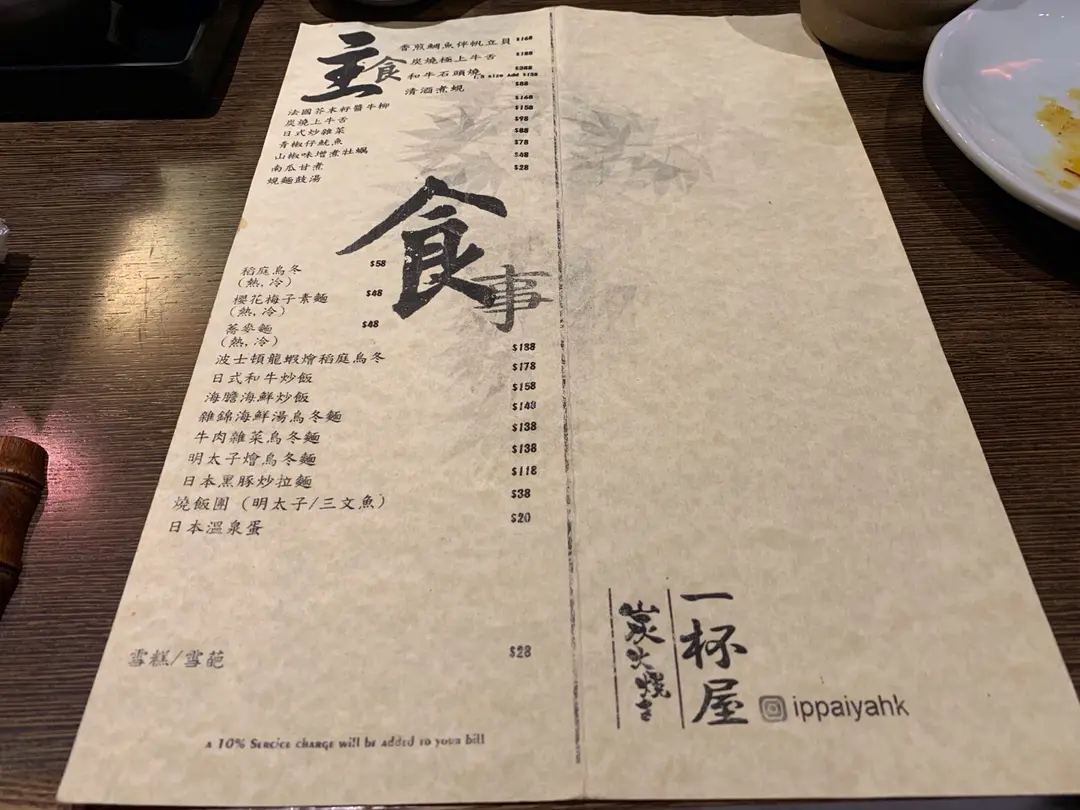 主食
香煎鯛魚伴帆立貝 $168
炭燒極上牛舌 $188
和牛石頭燒 $388
清酒煮蜆 $88
法國芥末籽醬牛柳 $168
炭燒上牛舌 $158
日式炒雜菜 $98
青椒仔魷魚 $88
山椒味增煮牡蠣 $78
南瓜甘煮 $48
蜆麵豉湯 $28
食事
稻庭烏冬 $58
(熱,冷)
櫻花梅子素麵 $48
(熱,冷)
蕎麥麵 $48
(熱,冷)
波士頓龍蝦燴稻庭烏冬 $188
日式和牛炒飯 $178
海膽海鮮炒飯 $158
雜錦海鮮湯烏冬麵 $148
牛肉雜菜烏冬麵 $138
明太子燴烏冬麵 $138
日本黑豚炒拉麵 $118
燒飯團 (明太子/三文魚) $38
日本溫泉蛋 $20
雪糕/雪葩 $28
A 10% Sercice charge will be added to your bill
一杯屋
炭火燒き
ippaiyahk